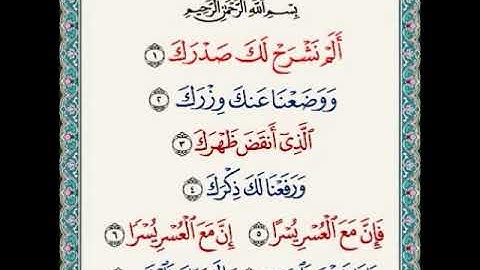 بِسْمِ ٱللَّهِ ٱلرَّحْمَٰنِ ٱلرَّحِيمِ
أَلَمْ نَشْرَحْ لَكَ صَدْرَكَ ١
وَوَضَعْنَا عَنكَ وِزْرَكَ ٢
ٱلَّذِىٓ أَنقَضَ ظَهْرَكَ ٣
وَرَفَعْنَا لَكَ ذِكْرَكَ ٤
فَإِنَّ مَعَ ٱلْعُسْرِ يُسْرًا ٥ إِنَّ مَعَ ٱلْعُسْرِ يُسْرًا ٦